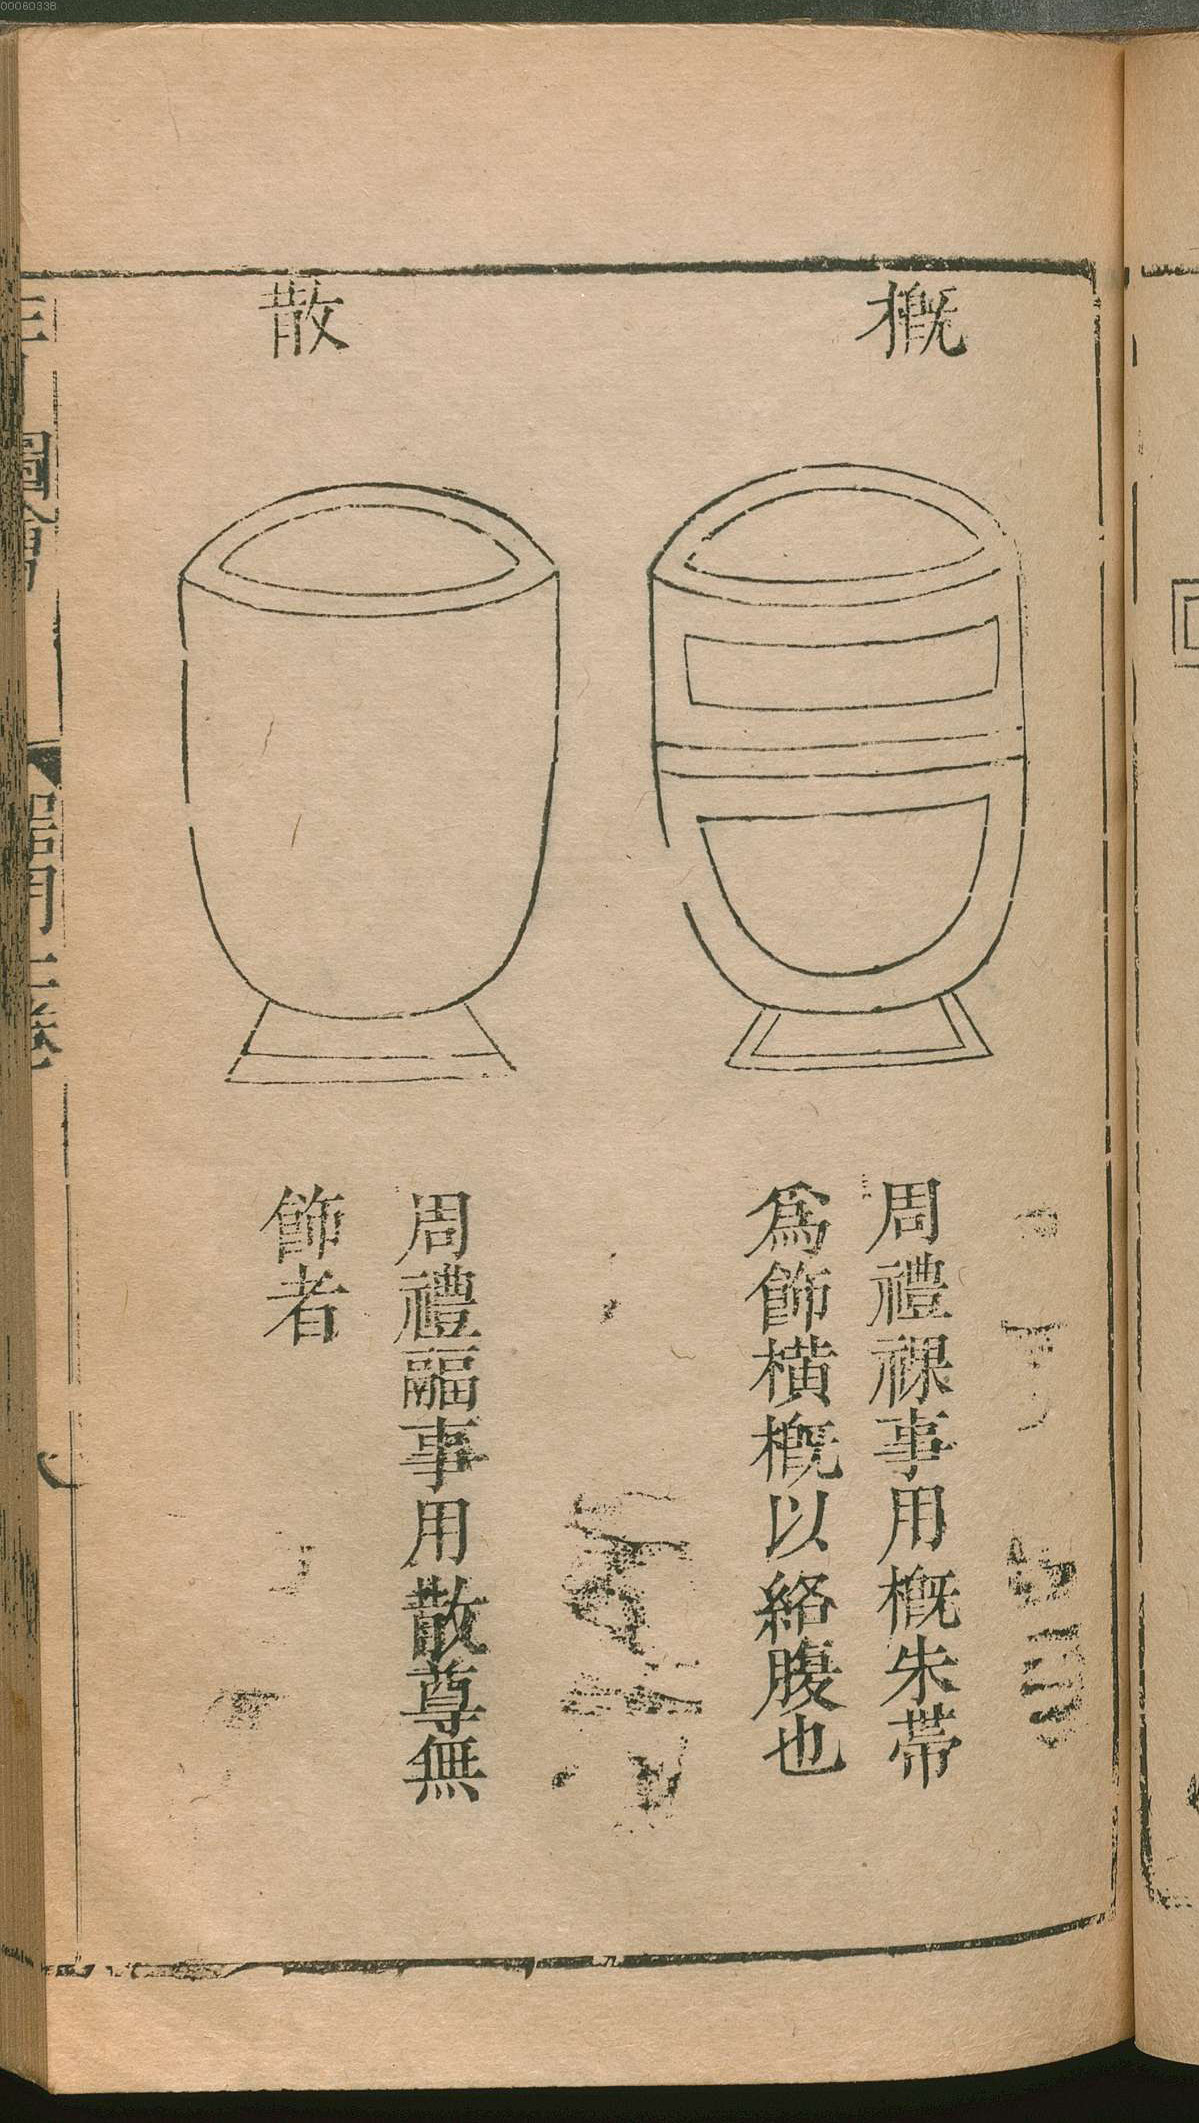 概
周禮祼事用概朱帶
爲飾横概以絡腹也
散
周禮疈事用散尊無
飾者
圖會
器用二卷
00060338